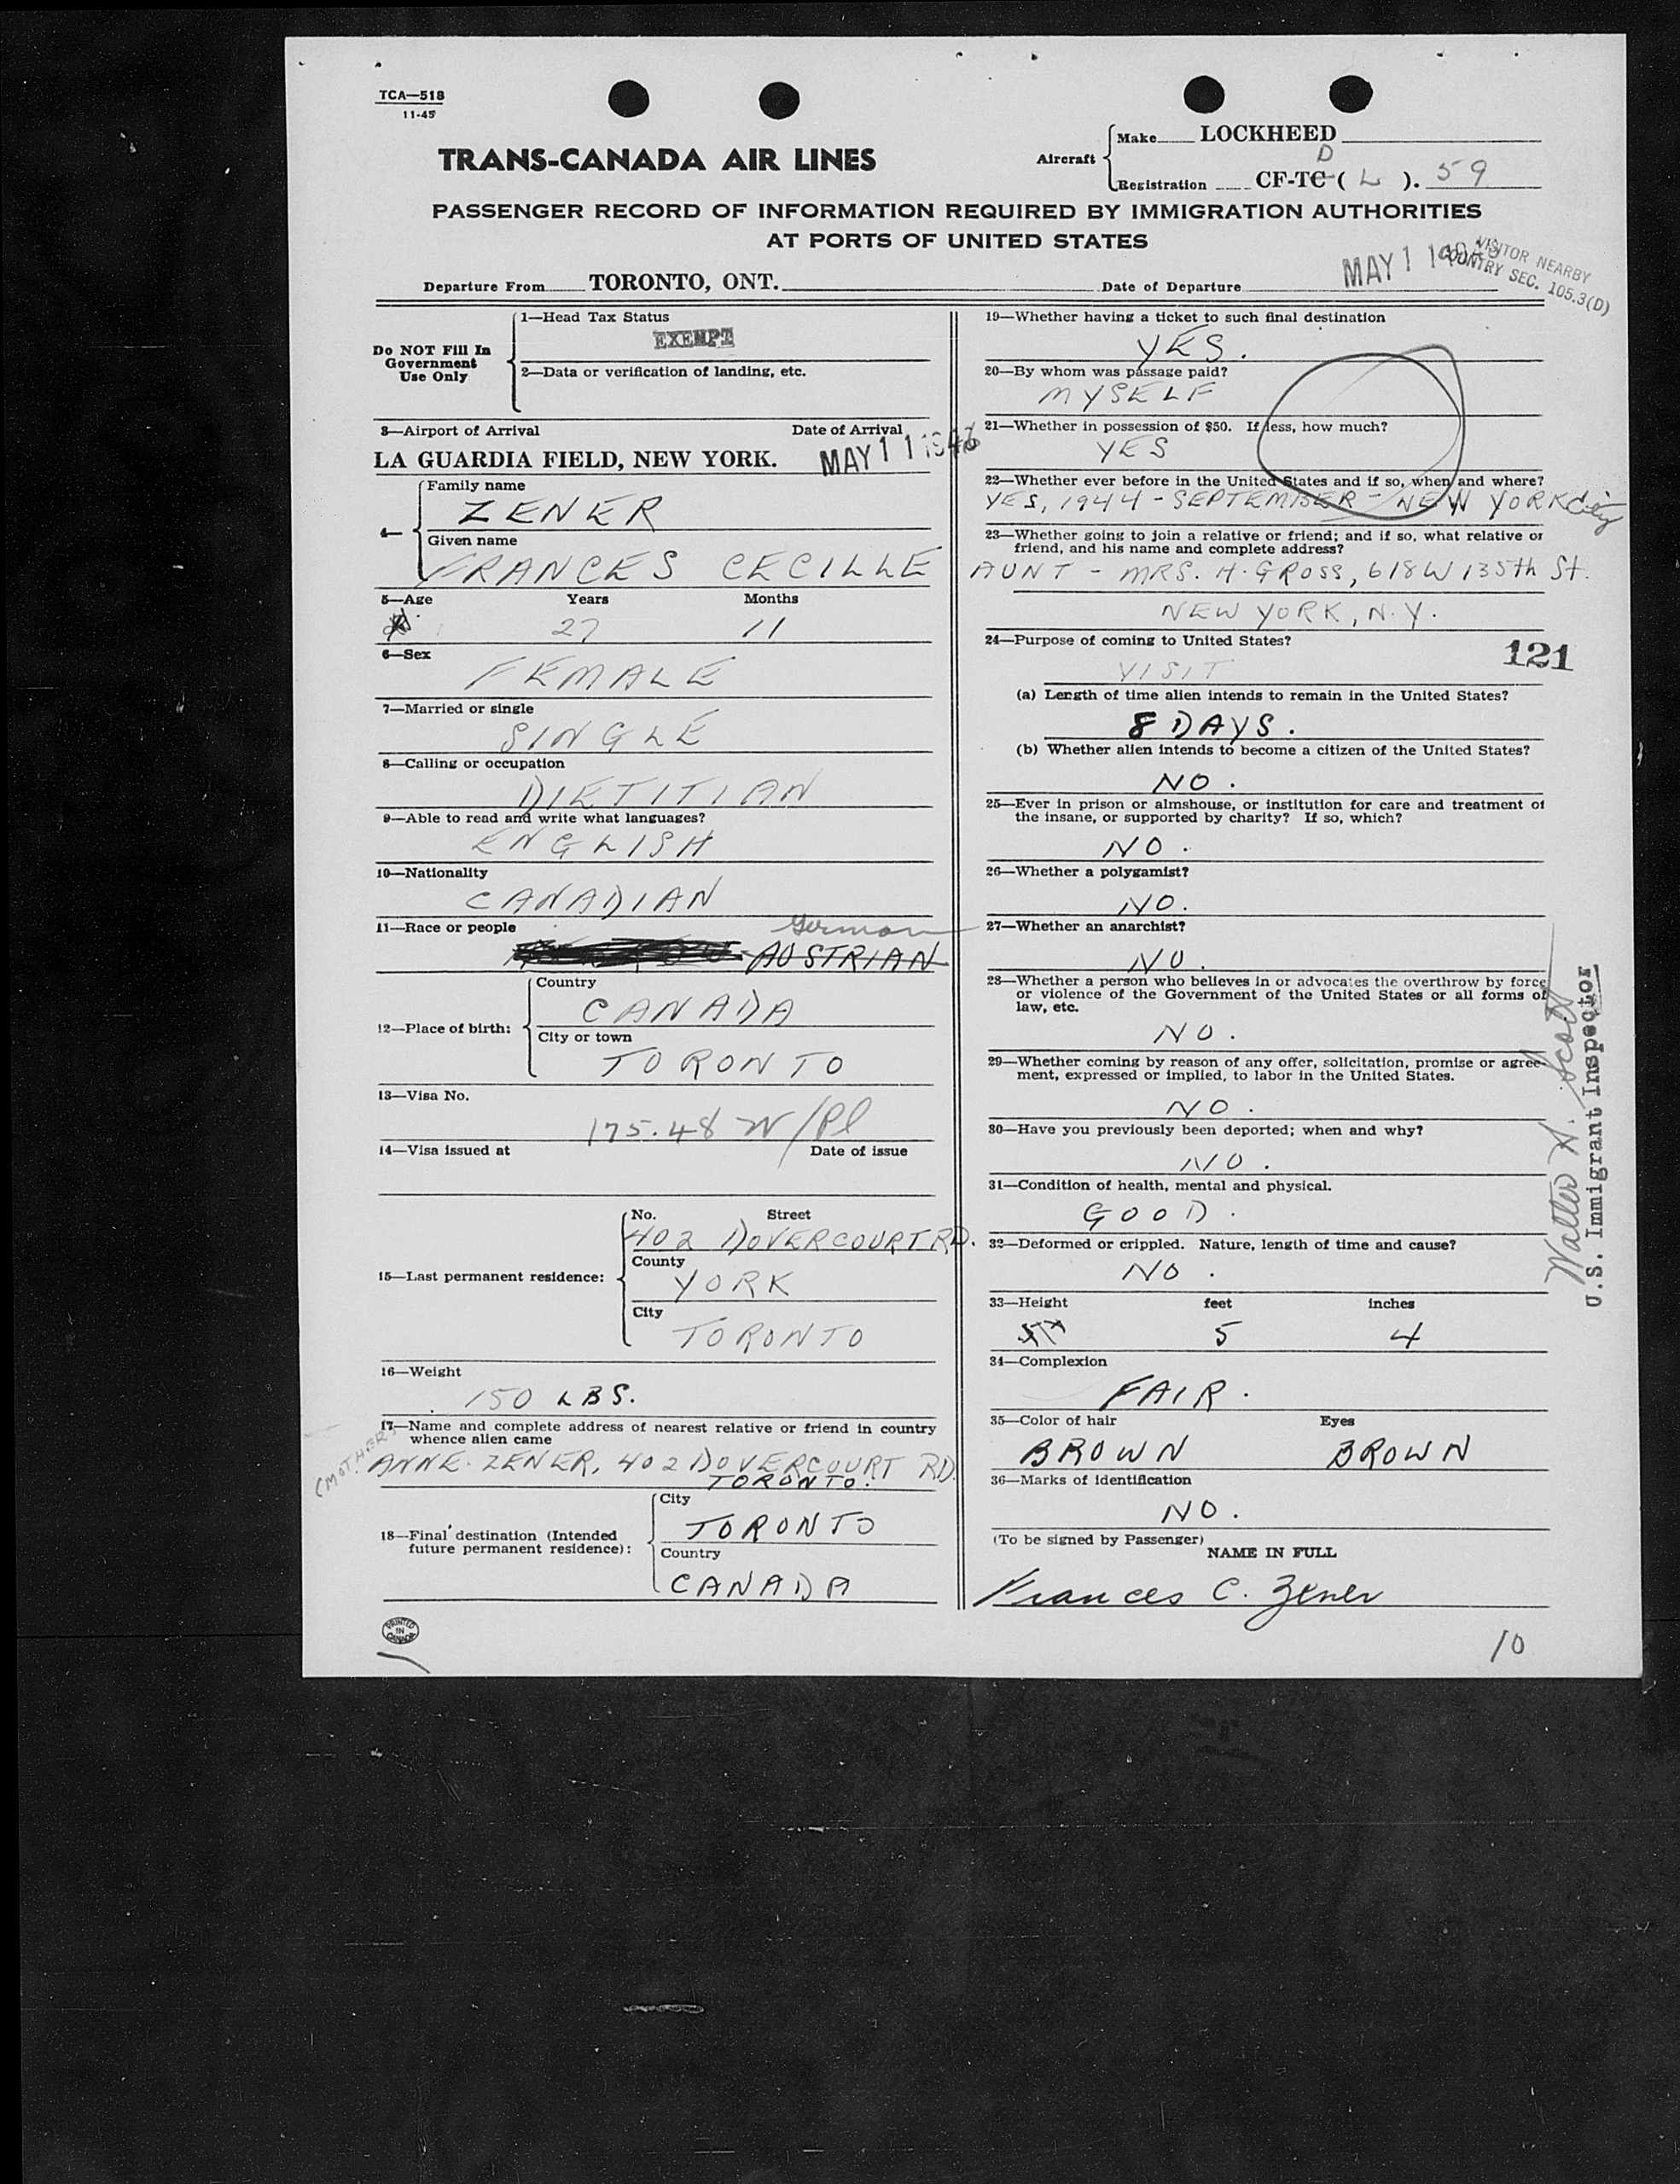 TCA—518
11-45
TRANS-CANADA AIR LINES
Aircraft
Make LOCKHEED
D
Registration CF-TC ( L ). 59
PASSENGER RECORD OF INFORMATION REQUIRED BY IMMIGRATION AUTHORITIES
AT PORTS OF UNITED STATES
VISITOR NEARBY
COUNTRY SEC. 105.3(D)
Departure From TORONTO, ONT. Date of Departure MAY 1 1
Do NOT Fill In
Government
Use Only
1—Head Tax Status
EXEMPT
2—Data or verification of landing, etc.
3—Airport of Arrival Date of Arrival
LA GUARDIA FIELD, NEW YORK. MAY 1 1 1946
4—
Family name
ZENER
Given name
FRANCES CECILLE
5—Age Years Months
27 11
6—Sex
FEMALE
7—Married or single
SINGLE
8—Calling or occupation
DIETITIAN
9—Able to read and write what languages?
ENGLISH
10—Nationality
CANADIAN
11—Race or people German
AUSTRIAN
12—Place of birth:
Country
CANADA
City or town
TORONTO
13—Visa No.
175.48
14—Visa issued at Date of issue
15—Last permanent residence:
No. Street
402 DOVERCOURT RD.
County
YORK
City
TORONTO
16—Weight
150 LBS.
17—Name and complete address of nearest relative or friend in country
whence alien came
(MOTHER) ANNE ZENER, 402 DOVERCOURT RD.
TORONTO.
18—Final destination (Intended
future permanent residence):
City
TORONTO
Country
CANADA
PRINTED
IN
CANADA
19—Whether having a ticket to such final destination
YES.
20—By whom was passage paid?
MYSELF
21—Whether in possession of $50. If less, how much?
YES
22—Whether ever before in the United States and if so, when and where?
YES, 1944 - SEPTEMBER - NEW YORK City
23—Whether going to join a relative or friend; and if so, what relative or
friend, and his name and complete address?
AUNT - MRS. H. GROSS, 618 W 135th St.
NEW YORK, N.Y.
24—Purpose of coming to United States?
121
VISIT
(a) Length of time alien intends to remain in the United States?
8 DAYS.
(b) Whether alien intends to become a citizen of the United States?
NO.
25—Ever in prison or almshouse, or institution for care and treatment of
the insane, or supported by charity? If so, which?
NO.
26—Whether a polygamist?
NO.
27—Whether an anarchist?
NO.
28—Whether a person who believes in or advocates the overthrow by force
or violence of the Government of the United States or all forms of
law, etc.
NO.
29—Whether coming by reason of any offer, solicitation, promise or agree-
ment, expressed or implied, to labor in the United States.
NO.
30—Have you previously been deported; when and why?
NO.
31—Condition of health, mental and physical.
GOOD.
32—Deformed or crippled. Nature, length of time and cause?
NO.
33—Height feet inches
5 4
34—Complexion
FAIR.
35—Color of hair Eyes
BROWN BROWN
36—Marks of identification
NO.
(To be signed by Passenger)
NAME IN FULL
Frances C. Zener
10
Walter H. Scott
U.S. Immigrant Inspector